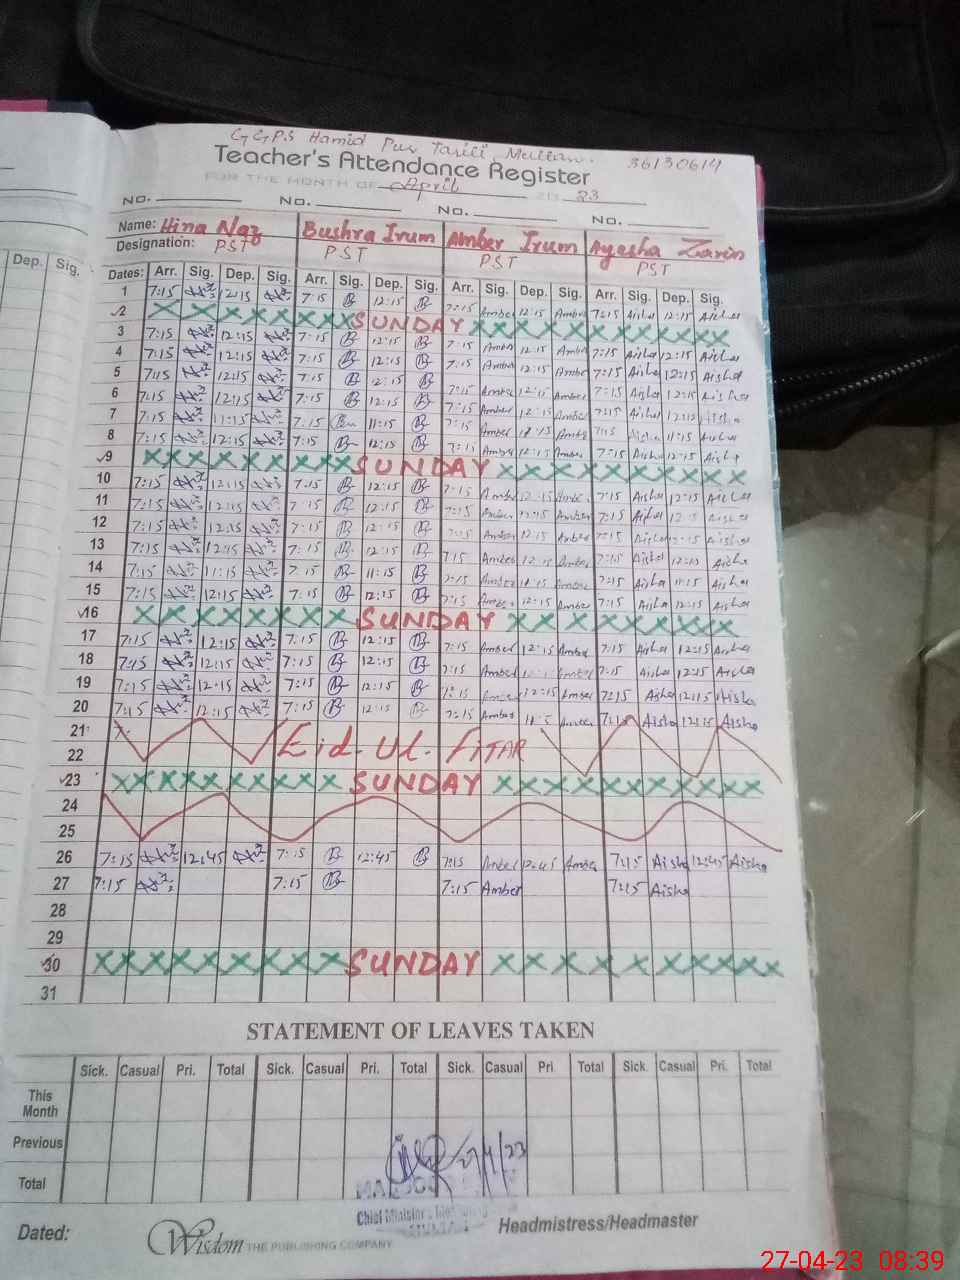 GGPS Hamid Pur Multan. 36130614
Teacher's Attendance Register
FOR THE MONTH OF April 20 23
No. No. No. No.
Name: Hina Naz Bushra Irum Amber Irum Ayesha Zarin
Designation: PST PST PST PST
Dates: Arr. Sig. Dep. Sig. Arr. Sig. Dep. Sig. Arr. Sig. Dep. Sig. Arr. Sig. Dep. Sig.
Dep. Sig.
1 7:15 12:15 7:15 12:15 7:15 Amber 12:15 Amber 7:15 Aisha 12:15 Aisha
2 SUNDAY
3 7:15 12:15 7:15 12:15 7:15 Amber 12:15 Amber 7:15 Aisha 12:15 Aisha
4 7:15 12:15 7:15 12:15 7:15 Amber 12:15 Amber 7:15 Aisha 12:15 Aisha
5 7:15 12:15 7:15 12:15 7:15 Amber 12:15 Amber 7:15 Aisha 12:15 Aisha
6 7:15 12:15 7:15 12:15 7:15 Amber 12:15 Amber 7:15 Aisha Aisha
7 7:15 11:15 7:15 11:15 7:15 Amber Amber 7:15 Aisha 11:15 Aisha
8 7:15 12:15 7:15 12:15 7:15 Amber 12:15 Amber 7:15 Aisha 12:15 Aisha
9 SUNDAY
10 7:15 12:15 7:15 12:15 7:15 Amber 12:15 Amber 7:15 Aisha 12:15 Aisha
11 7:15 12:15 7:15 12:15 7:15 Amber 12:15 Amber 7:15 Aisha Aisha
12 7:15 12:15 7:15 12:15 Amber 12:15 Amber 7:15 Aisha 12:15 Aisha
13 7:15 12:15 7:15 12:15 7:15 Amber 12:15 Amber 7:15 Aisha 12:15 Aisha
14 7:15 11:15 7:15 11:15 7:15 Amber 11:15 Amber 7:15 Aisha 11:15 Aisha
15 7:15 12:15 7:15 12:15 7:15 Amber 12:15 Amber 7:15 Aisha 12:15 Aisha
16 SUNDAY
17 7:15 12:15 7:15 12:15 7:15 Amber 12:15 Amber 7:15 Aisha 12:15 Aisha
18 7:15 12:15 7:15 12:15 7:15 Amber Amber 7:15 Aisha 12:15 Aisha
19 7:15 12:15 7:15 12:15 7:15 Amber 12:15 Amber 7:15 Aisha 12:15 Aisha
20 7:15 12:15 7:15 12:15 7:15 Amber Amber 7:15 Aisha 12:15 Aisha
21 7:
22 Eid-Ul-FiTAR
23 SUNDAY
24
25
26 7:15 12:45 7:15 12:45 7:15 Amber 12:45 Amber 7:15 Aisha 12:45 Aisha
27 7:15 7:15 7:15 Amber 7:15 Aisha
28
29
30 SUNDAY
31
STATEMENT OF LEAVES TAKEN
Sick. Casual Pri. Total Sick. Casual Pri. Total Sick. Casual Pri. Total Sick. Casual Pri. Total
This Month
Previous
Total
27/4/23
Chief Minister
Dated: Headmistress/Headmaster
Wisdom THE PUBLISHING COMPANY
27-04-23 08:39